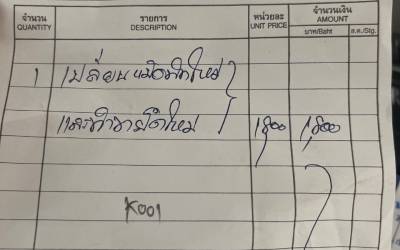 จำนวน รายการ หน่วยละ จำนวนเงิน
QUANTITY DESCRIPTION UNIT PRICE AMOUNT
บาท/Baht ส.ต./Stg.
1 เปลี่ยน ใหม่
และ ใหม่ 1,800 1,800
K001